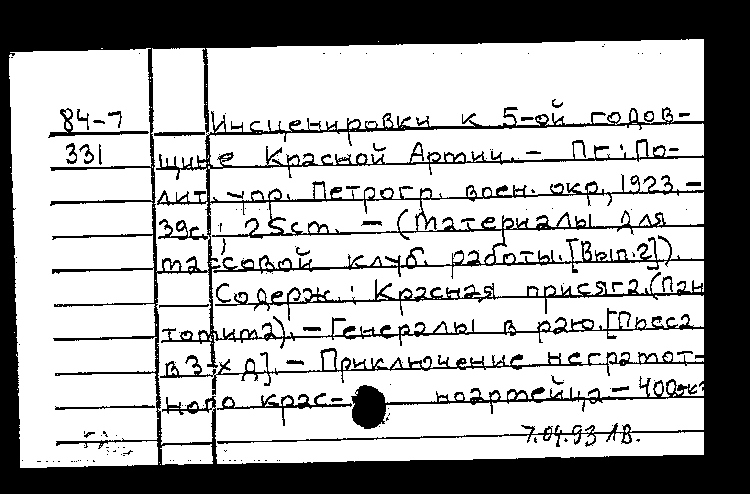 84-7
331
Инсценировки к 5-ой годов-
щине Красной Армии. – Пг.: По-
лит. упр. Петрогр. воен. окр., 1923. –
39с.; 25см. – (Материалы для
массовой клуб. работы. [Вып. 2]).
Содерж.: Красная присяга. (Пан
томима). – Генералы в раю. [Пьеса
в 3-х д]. – Приключение неграмот-
ного крас- ноармейца – 400экз
7.04.93 ЛВ.